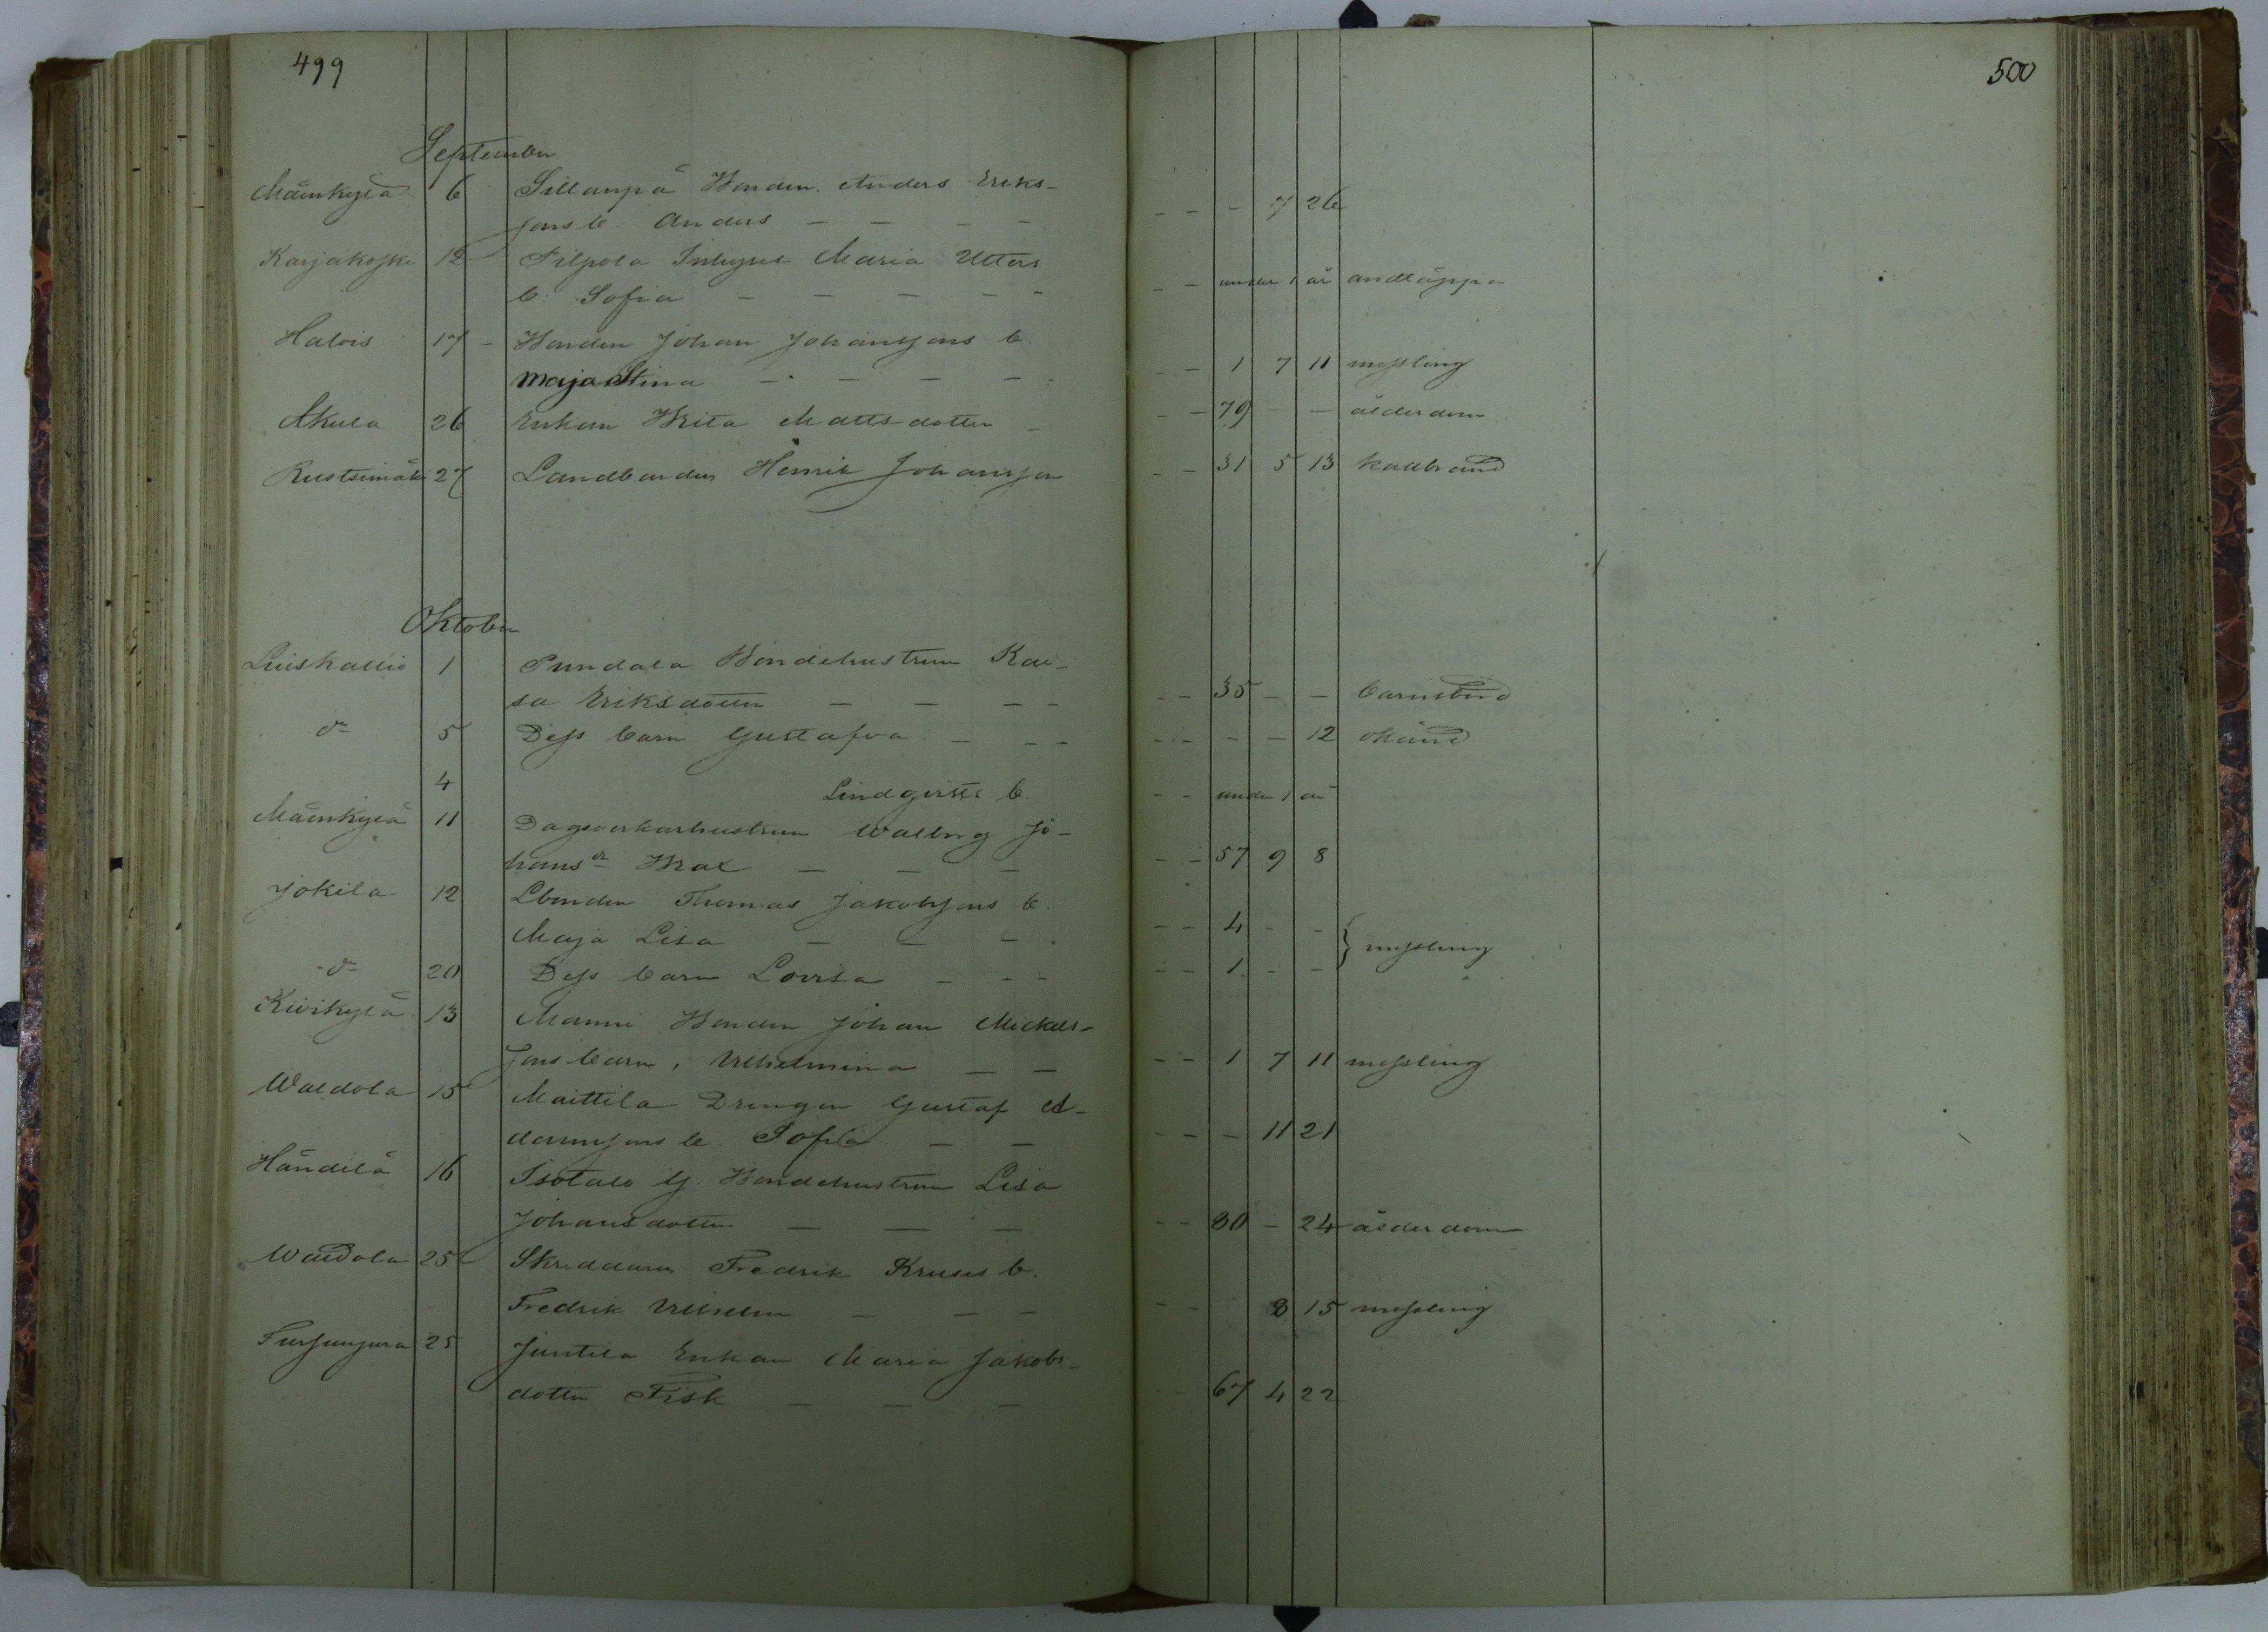 499
500
September
Mäenkylä 6 Sillanpä Bonden Anders Eriks-
sons b. Anders — — — — - - - 7 26
Karjakoski 12 Filpola Inhyses Maria Utters
b. Sofia — — — — - - - under 1 år andtäppa
Halois 17 - Bonden Johan Johanssons b.
Maja Stina — — — — - - 1 7 11 messling
Akula 26 Enkan Brita Mattsdotter - - - 79 - - ålderdom
Rustsimäki 27 Landbonden Henrik Johansson - - 31 5 13 kallbrand
Oktober
Luiskallio 1 Pundala Bondehustrun Kai-
sa Eriksdotter — — — - - - 35 - - barnsbörd
do 5 Dess barn Gustafva — - - - - - - 12 okänd
4 Lindqvists b. - - under 1 år
Mäenkylä 11 Dagsverkarhustrun Walborg Jo-
hansdr — — — - - 57 9 8
Jokila 12 Lbonden Thomas Jakobssons b.
Maja Lisa — — — - - 4 - - } messling
do 20 Dess barn Lovisa — - - - - 1 - -
Kivikylä 13 Manni Bonden Johan Mickels-
sons barn, Vilhelmina — — - - 1 7 11 messling
Waldola 15 Maittila Drengen Gustaf A-
damssons b. Sofia — — - - - 11 21
Händilä 16 Isotalo G. Bondehustrun Lisa
Johansdotter — — — - - 80 - 24 ålderdom
Waldola 25 Skreddaren Fredrik Kruses b.
Fredrik Vilhelm — — — - - 8 15 messling
25 Juntila Enkan Maria Jakobs-
dotter Fisk — — — - 67 4 22